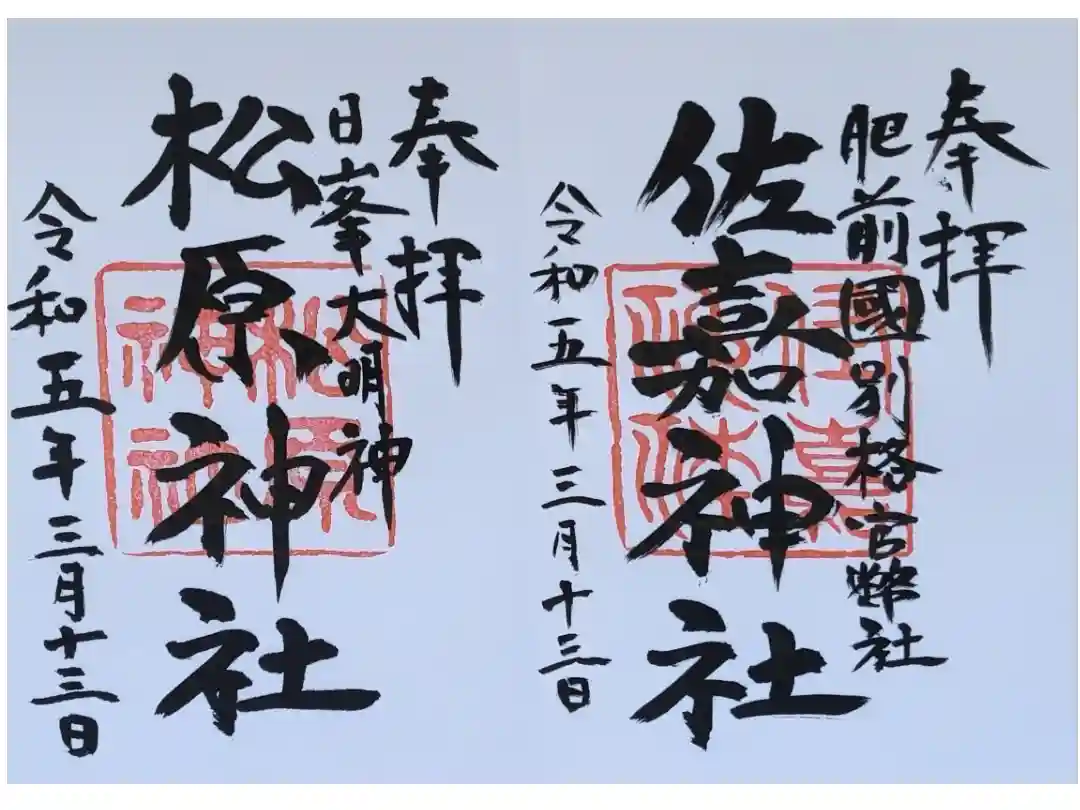 奉拝
肥前國別格官幣社
佐嘉神社
令和五年三月十三日
奉拝
日峯大明神
松原神社
松原神社
令和五年三月十三日